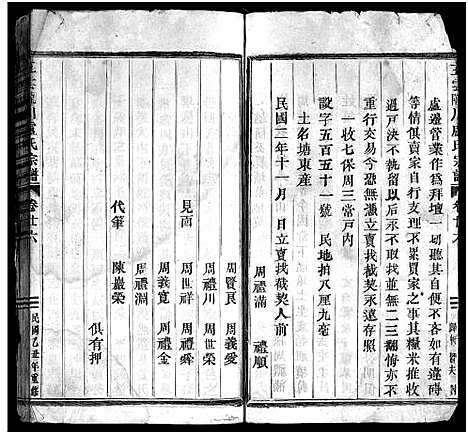 處邊管業作爲拜壇一切聽其自便不各如有違碍
等情俱賣家自行支理不累買家之事其糧米推收
過戶決不執留以后亦不取找並無二三翻悔亦不
重行交易今恐無憑立賣找截契永遠存照
一收七保周三當戶內
設字五百五十一號 民地拍八厘九毫
土名塘東產
民國三年十一月 日立賣找截契人前
周禮滿 禮順
周賢良 周義愛
見面 周禮川 周世榮
周世祥 周禮舜
周義寬 周禮金
周禮淵
代筆 陳嚴榮 俱有押
盧氏宗譜
卷廿六
民國乙丑年重修